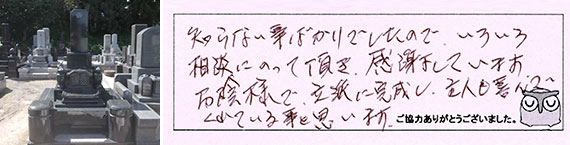 知らない事ばかりでしたので、いろいろ
相談にのって頂き、感謝をしています
お陰様で、立派に完成し、主人も喜んで
くれている事と思います。
ご協力ありがとうございました。